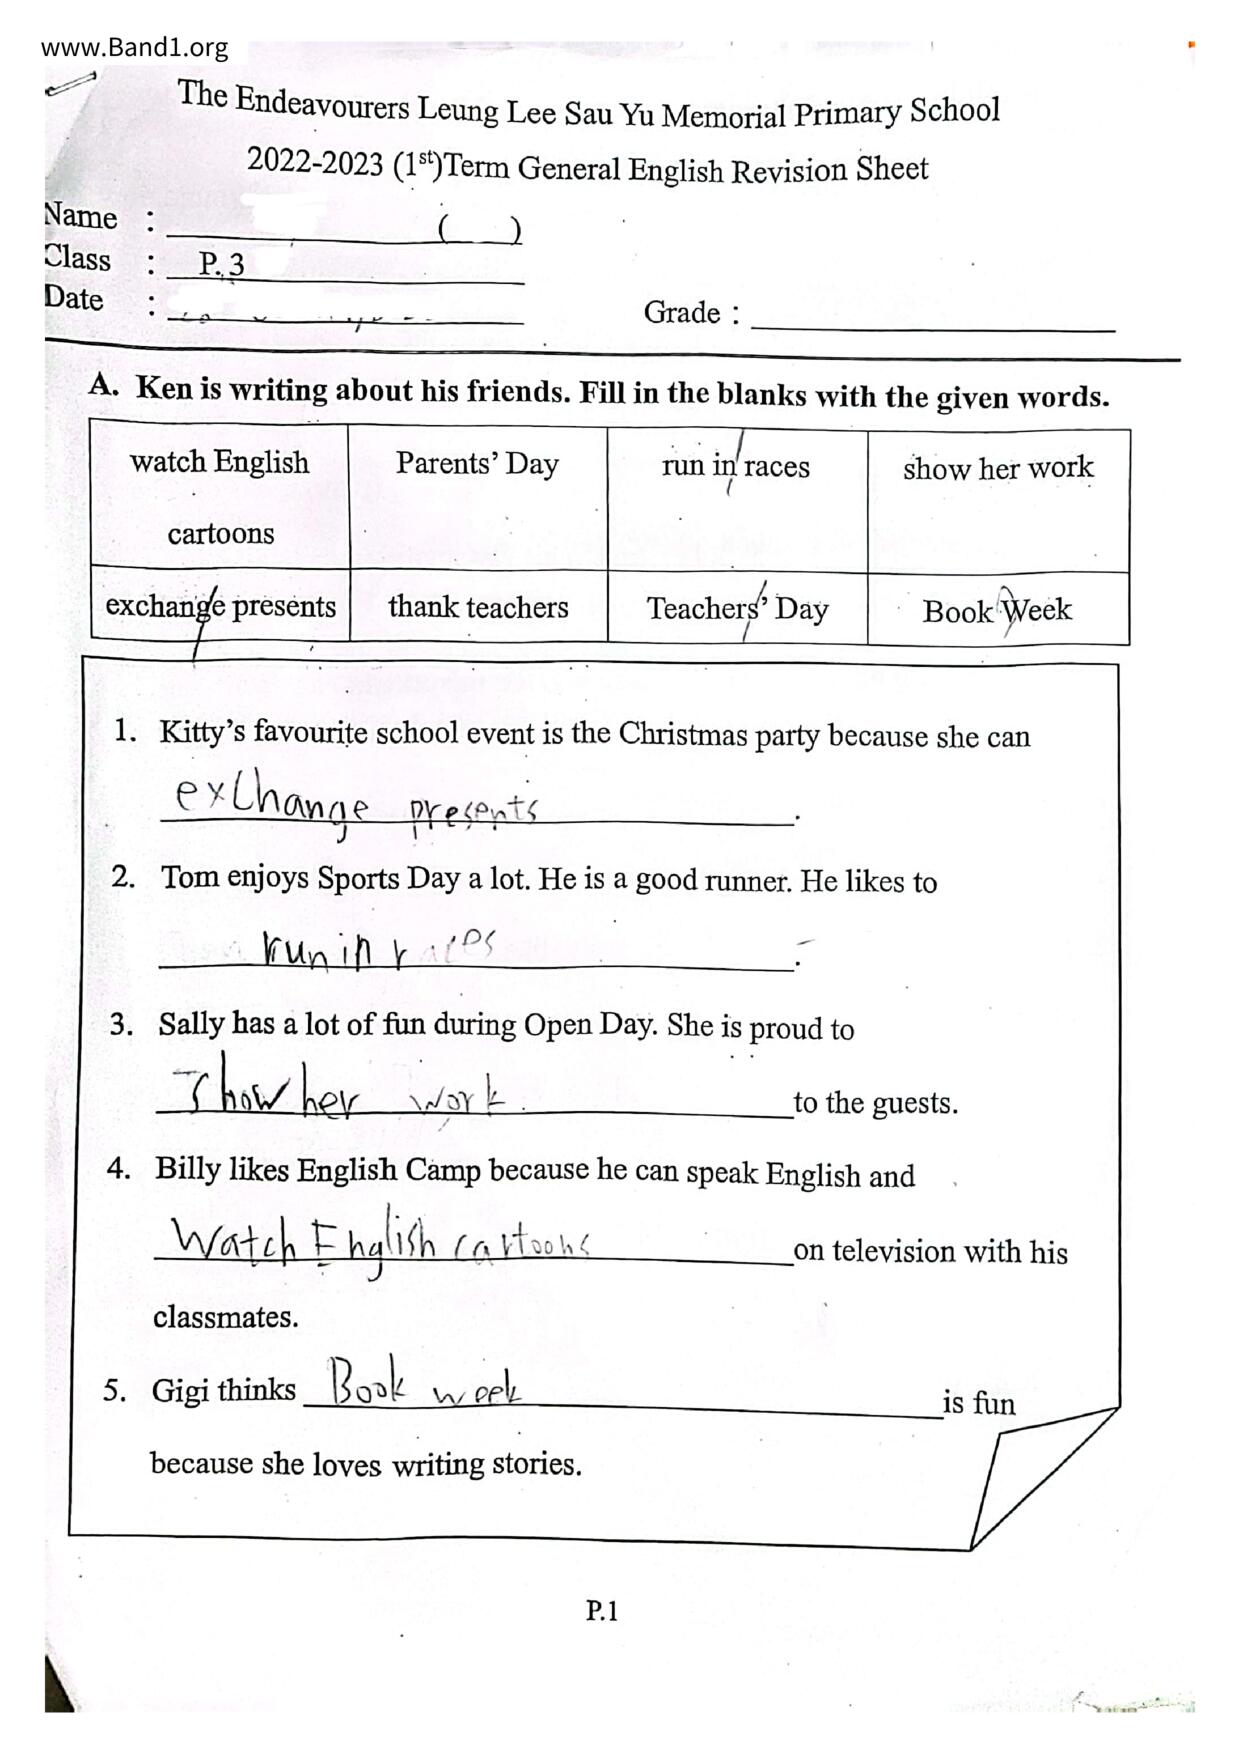 www.Band1.org
The Endeavourers Leung Lee Sau Yu Memorial Primary School
2022-2023 (1st)Term General English Revision Sheet
Name : ( )
Class : P.3
Date :
Grade :
A. Ken is writing about his friends. Fill in the blanks with the given words.
watch English cartoons
Parents' Day
run in races
show her work
exchange presents
thank teachers
Teachers' Day
Book Week
1. Kitty's favourite school event is the Christmas party because she can
exchange presents .
2. Tom enjoys Sports Day a lot. He is a good runner. He likes to
run in races .
3. Sally has a lot of fun during Open Day. She is proud to
show her work to the guests.
4. Billy likes English Camp because he can speak English and
Watch English cartoons on television with his
classmates.
5. Gigi thinks Book week is fun
because she loves writing stories.
P.1